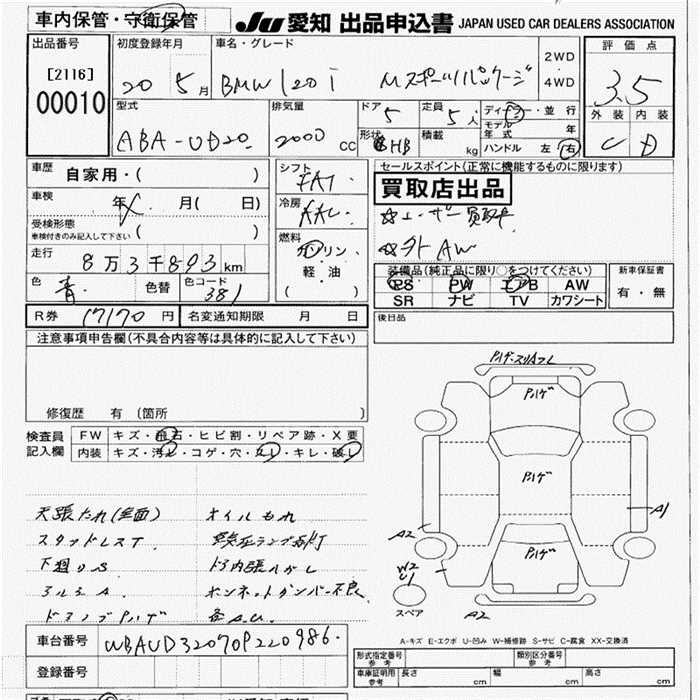 車内保管・守衛保管
JU 愛知 出品申込書 JAPAN USED CAR DEALERS ASSOCIATION
出品番号 初度登録年月 車名・グレード 2WD 4WD 評価点
[2116] 00010
20 5月 BMW 120i Mスポーツパッケージ 3.5
型式 排気量 ドア 定員 ディーラー・並行 外装 内装
ABA-UD20 2000 cc 5 5人 モデル年式 年 C D
形状 HB 積載 kg ハンドル 左 右
車歴 自家用・( ) シフト FAT セールスポイント(正常に機能するものに限ります)
車検 年 月( 日) 冷房 AAC 買取店出品
受検形態 車検付きのみ記入して下さい ( ) ☆ユーザー買取車
燃料 ガソリン 軽・油 ( ) ☆外AW
走行 8万3千893km
色 青 色替 色コード 381
装備品(純正品に限り○をつけてください) 新車保証書
PS PW エアB AW 有・無
SR ナビ TV カワシート
R券 17170円 名変通知期限 月 日 後日品
注意事項申告欄(不具合内容等は具体的に記入して下さい)
修復歴 有 (箇所 )
検査員記入欄 FW キズ・飛石・ヒビ割・リペア跡・X要
内装 キズ・汚レ・コゲ・穴・スレ・キレ・破レ
天張たれ(全面) オイルもれ
スタッドレスT. 警告ランプ点灯
下廻りS ドア内張はがし
アルミA ボンネットダンパー不良
ドアノブPハゲ 各A.U.
Pハゲ
Pハゲ
Pハゲ
A1
A2
W2
U1
スペア
A2
A-キズ E-エクボ U-凹み W-補修跡 S-サビ C-腐食 XX-交換済
車台番号 WBAUD32070P220986
登録番号
形式指定番号 参考 類別区分番号 参考
車庫証明用 参考 長さ cm 幅 cm 高さ cm